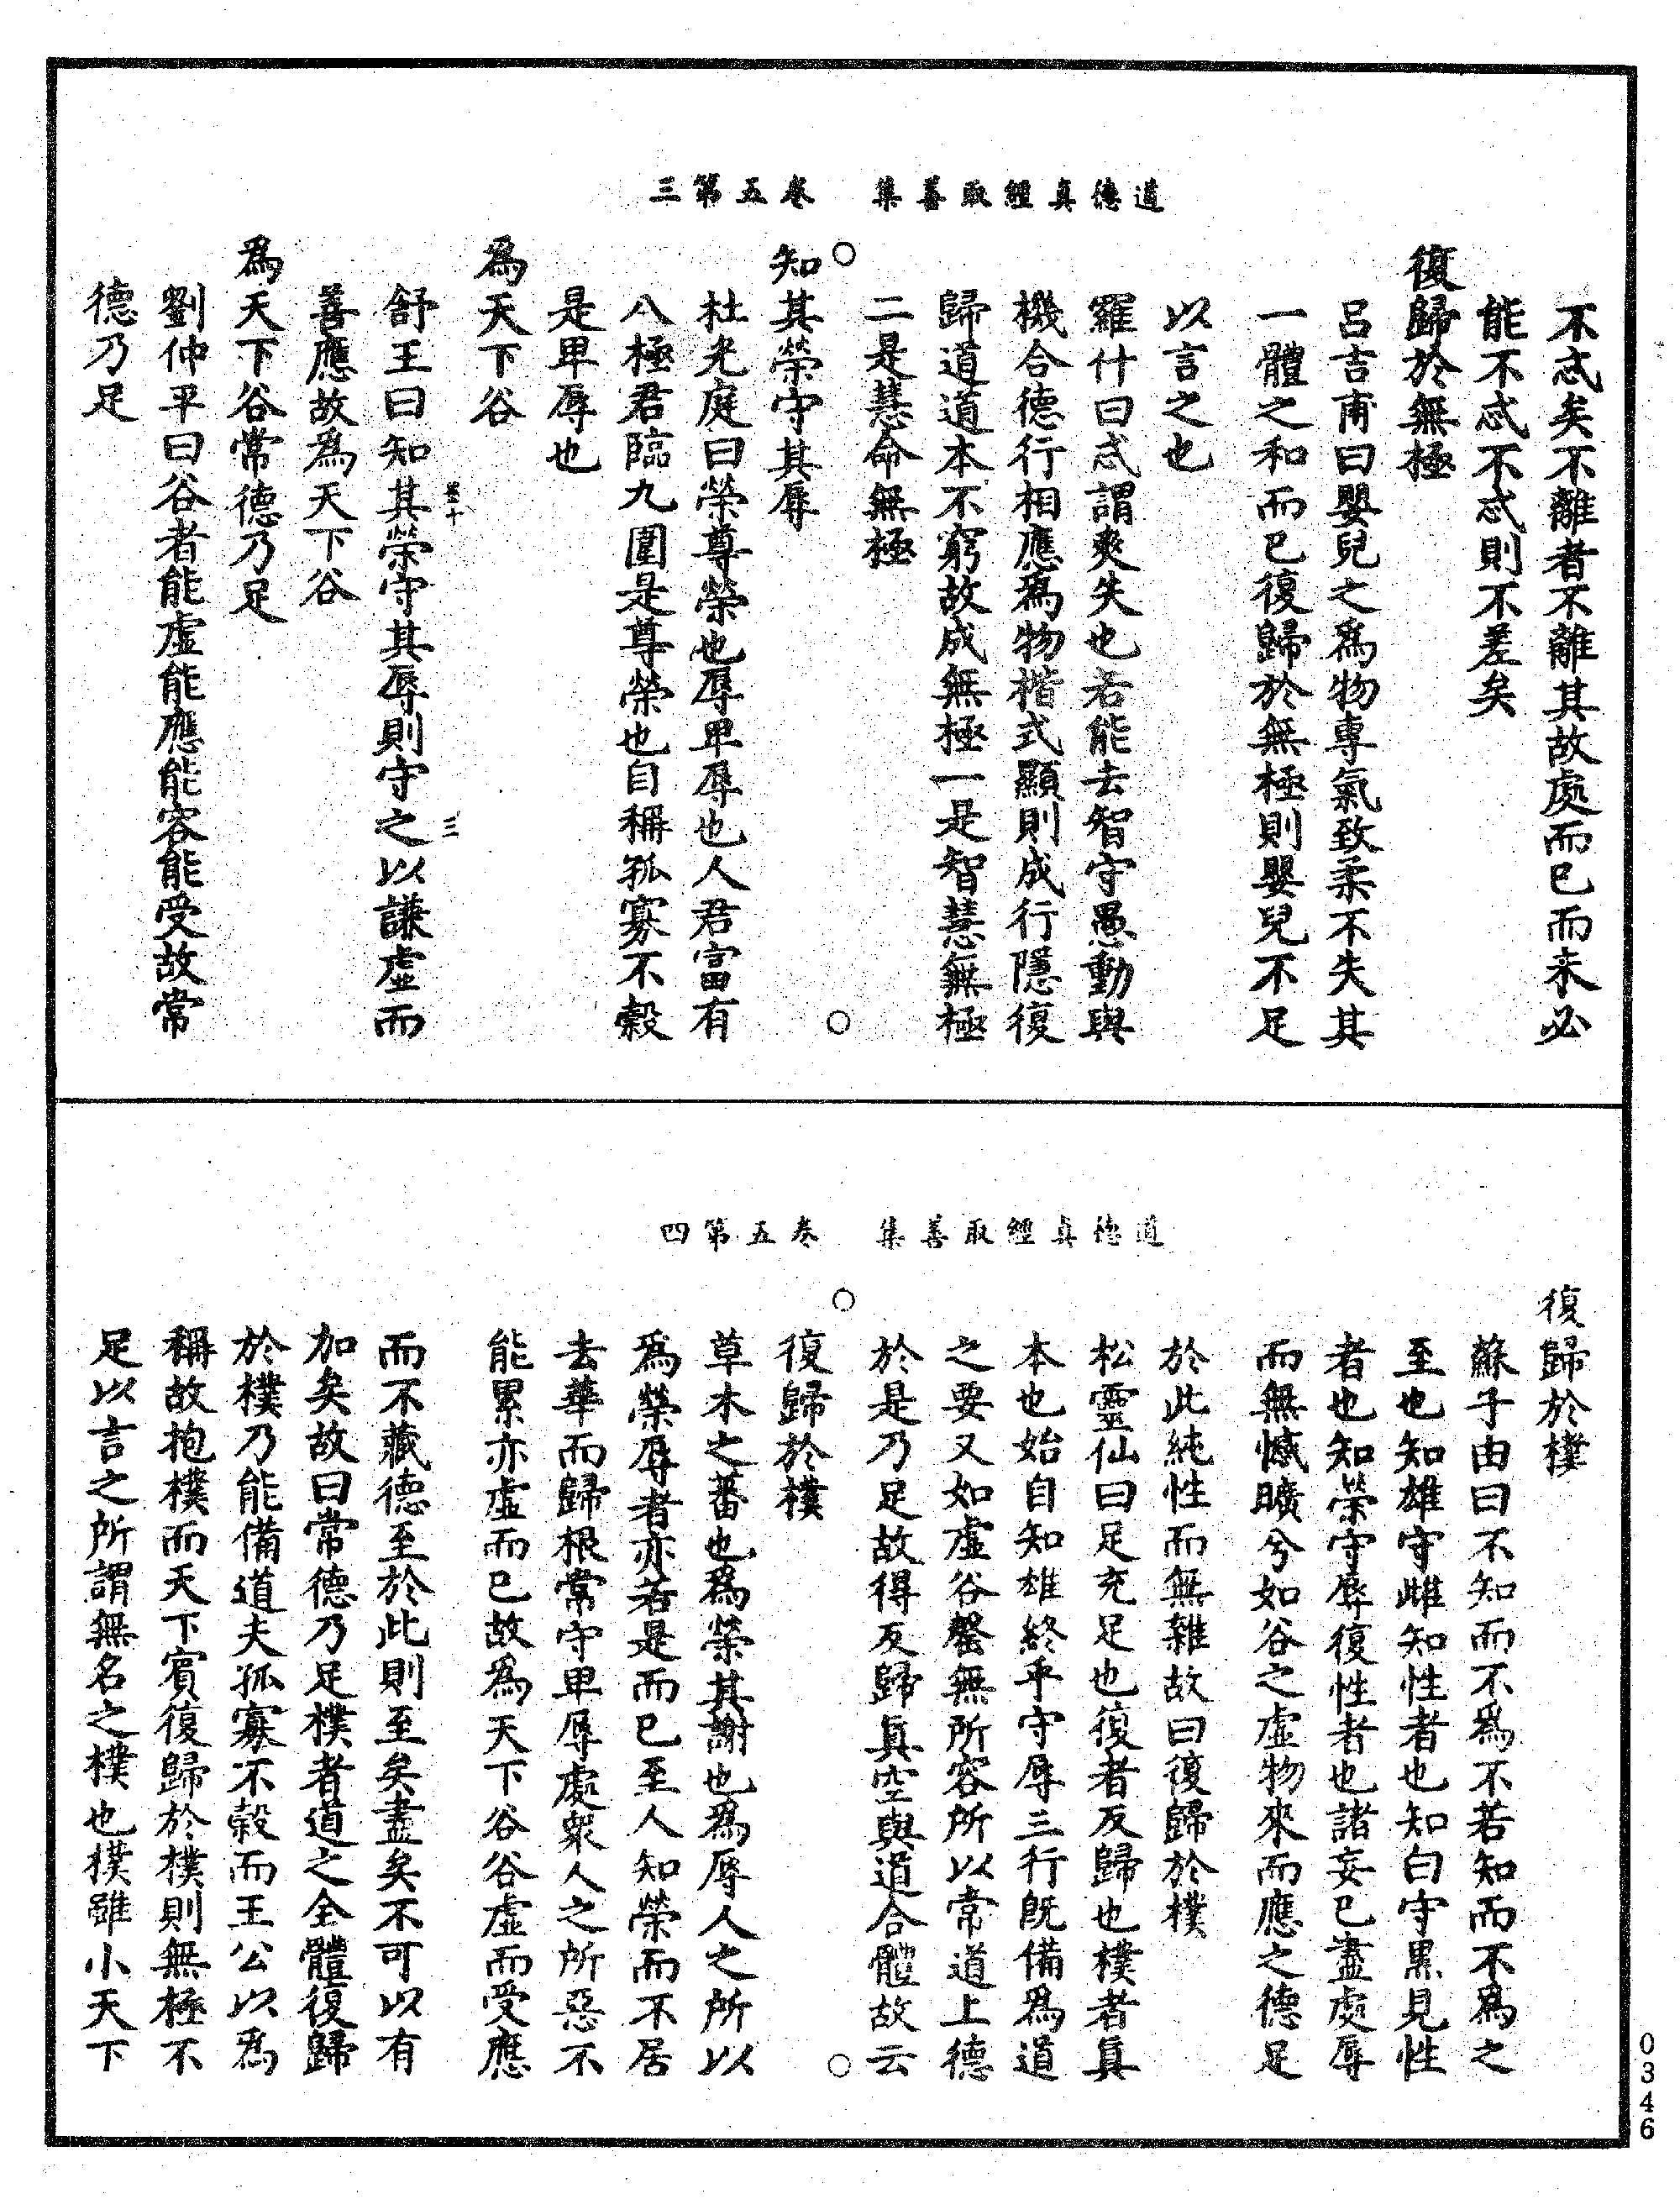 道德真經取善集　卷五第三
不忒矣不離者不離其故處而已而未必
能不忒不忒則不差矣
復歸於無極
呂吉甫曰嬰兒之爲物專氣致柔不失其
一體之和而已復歸於無極則嬰兒不足
以言之也
羅什曰忒謂爽失也若能去智守愚動與
機合德行相應爲物楷式顯則成行隱復
歸道道本不窮故成無極一是智慧無極
二是慧命無極
知其榮守其辱
杜光庭曰榮尊榮也辱卑辱也人君富有
八極君臨九圍是尊榮也自稱孤寡不穀
是卑辱也
爲天下谷
舒王曰知其榮守其辱則守之以謙虛而
三
善應故爲天下谷
爲天下谷常德乃足
劉仲平曰谷者能虛能應能容能受故常
德乃足
道德真經取善集　卷五第四
復歸於樸
蘇子由曰不知而不爲不若知而不爲之
至也知雄守雌知性者也知白守黑見性
者也知榮守辱復性者也諸妄已盡處辱
而無憾曠兮如谷之虛物來而應之德足
於此純性而無雜故曰復歸於樸
松靈仙曰足充足也復者反歸也樸者真
本也始自知雄終乎守辱三行既備爲道
之要又如虛谷罄無所容所以常道上德
於是乃足故得反歸真空與道合體故云
復歸於樸
草木之蕃也爲榮其謝也爲辱人之所以
爲榮辱者亦若是而已至人知榮而不居
去華而歸根常守卑辱處衆人之所惡不
能累亦虛而已故爲天下谷谷虛而受應
而不藏德至於此則至矣盡矣不可以有
加矣故曰常德乃足樸者道之全體復歸
於樸乃能備道夫孤寡不穀而王公以爲
稱故抱樸而天下賓復歸於樸則無極不
足以言之所謂無名之樸也樸雖小天下
0346